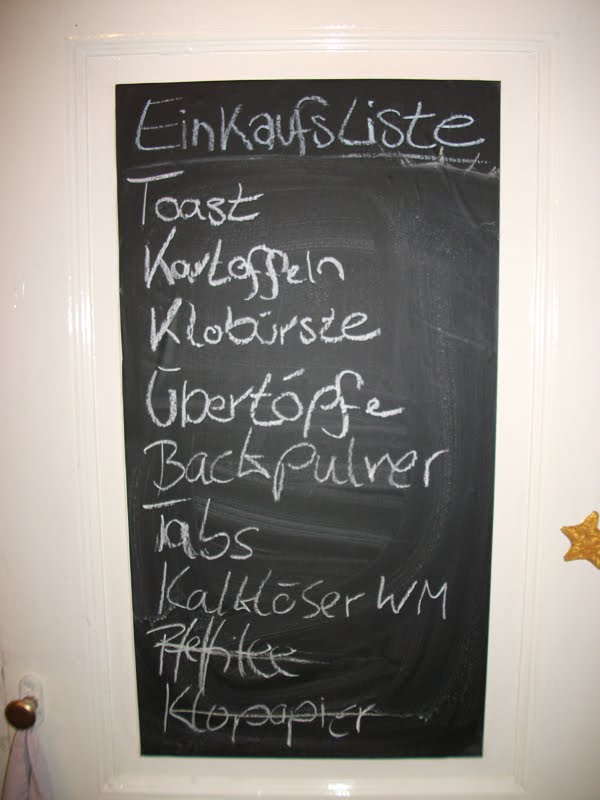 Einkaufsliste
Toast
Kartoffeln
Klobürste
Übertöpfe
Backpulver
Tabs
Kalklöser WM
Klopapier